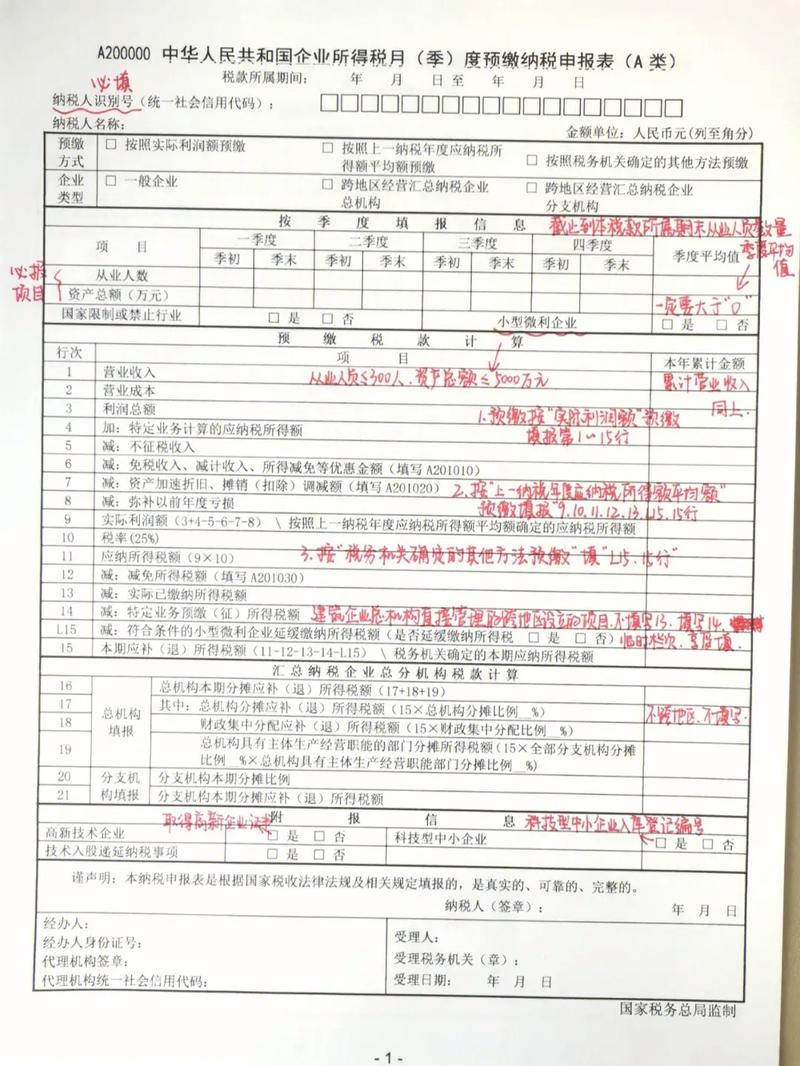 A200000 中华人民共和国企业所得税月（季）度预缴纳税申报表（A 类）
税款所属期间： 年 月 日 至 年 月 日
必填
纳税人识别号（统一社会信用代码）：□□□□□□□□□□□□□□□□□□
纳税人名称：
金额单位：人民币元(列至角分)
预缴方式 □ 按照实际利润额预缴 □ 按照上一纳税年度应纳税所得额平均额预缴 □ 按照税务机关确定的其他方法预缴
企业类型 □ 一般企业 □ 跨地区经营汇总纳税企业总机构 □ 跨地区经营汇总纳税企业分支机构
按 季 度 填 报 信 息
截止到本税款所属期末从业人员数量季度平均值
项 目 一季度 二季度 三季度 四季度 季度平均值
季初 季末 季初 季末 季初 季末 季初 季末
必报项目
从业人数
资产总额（万元）
一定要大于"0"
国家限制或禁止行业 □ 是 □ 否 小型微利企业 □ 是 □ 否
预 缴 税 款 计 算
行次 项 目 本年累计金额
1 营业收入
从业人员≤300人、资产总额≤5000万元
累计营业收入
2 营业成本
同上.
3 利润总额
1.预缴按"实际利润额"预缴
4 加：特定业务计算的应纳税所得额
填报第1~15行
5 减：不征税收入
6 减：免税收入、减计收入、所得减免等优惠金额（填写 A201010）
7 减：资产加速折旧、摊销（扣除）调减额（填写 A201020）
2.按"上一纳税年度应纳税所得额平均额"
8 减：弥补以前年度亏损
预缴填报"9.10.11.12.13.L15.15行
9 实际利润额（3+4-5-6-7-8） \ 按照上一纳税年度应纳税所得额平均额确定的应纳税所得额
10 税率(25%)
11 应纳所得税额（9×10）
3.按"税务机关确定的其他方法预缴"填"L15.15行"
12 减：减免所得税额（填写 A201030）
13 减：实际已缴纳所得税额
14 减：特定业务预缴（征）所得税额
建筑企业总机构直接管理的跨地区设立的项目.不填写13.填写14.
L15 减：符合条件的小型微利企业延缓缴纳所得税额（是否延缓缴纳所得税 □ 是 □ 否）
临时栏次.享受填.
15 本期应补（退）所得税额（11-12-13-14-L15） \ 税务机关确定的本期应纳所得税额
汇 总 纳 税 企 业 总 分 机 构 税 款 计 算
总机构填报
16 总机构本期分摊应补（退）所得税额（17+18+19）
17 其中：总机构分摊应补（退）所得税额（15×总机构分摊比例__%）
不跨地区.不填写.
18 财政集中分配应补（退）所得税额（15×财政集中分配比例__%）
19 总机构具有主体生产经营职能的部门分摊所得税额（15×全部分支机构分摊比例__%×总机构具有主体生产经营职能部门分摊比例__%）
分支机构填报
20 分支机构本期分摊比例
21 分支机构本期分摊应补（退）所得税额
附 报 信 息
取得高新企业证书
科技型中小企业入库登记编号
高新技术企业 □ 是 □ 否 科技型中小企业 □ 是 □ 否
技术入股递延纳税事项 □ 是 □ 否
谨声明：本纳税申报表是根据国家税收法律法规及相关规定填报的，是真实的、可靠的、完整的。
纳税人（签章）： 年 月 日
经办人：
经办人身份证号：
代理机构签章：
代理机构统一社会信用代码：
受理人：
受理税务机关（章）：
受理日期： 年 月 日
国家税务总局监制
- 1 -